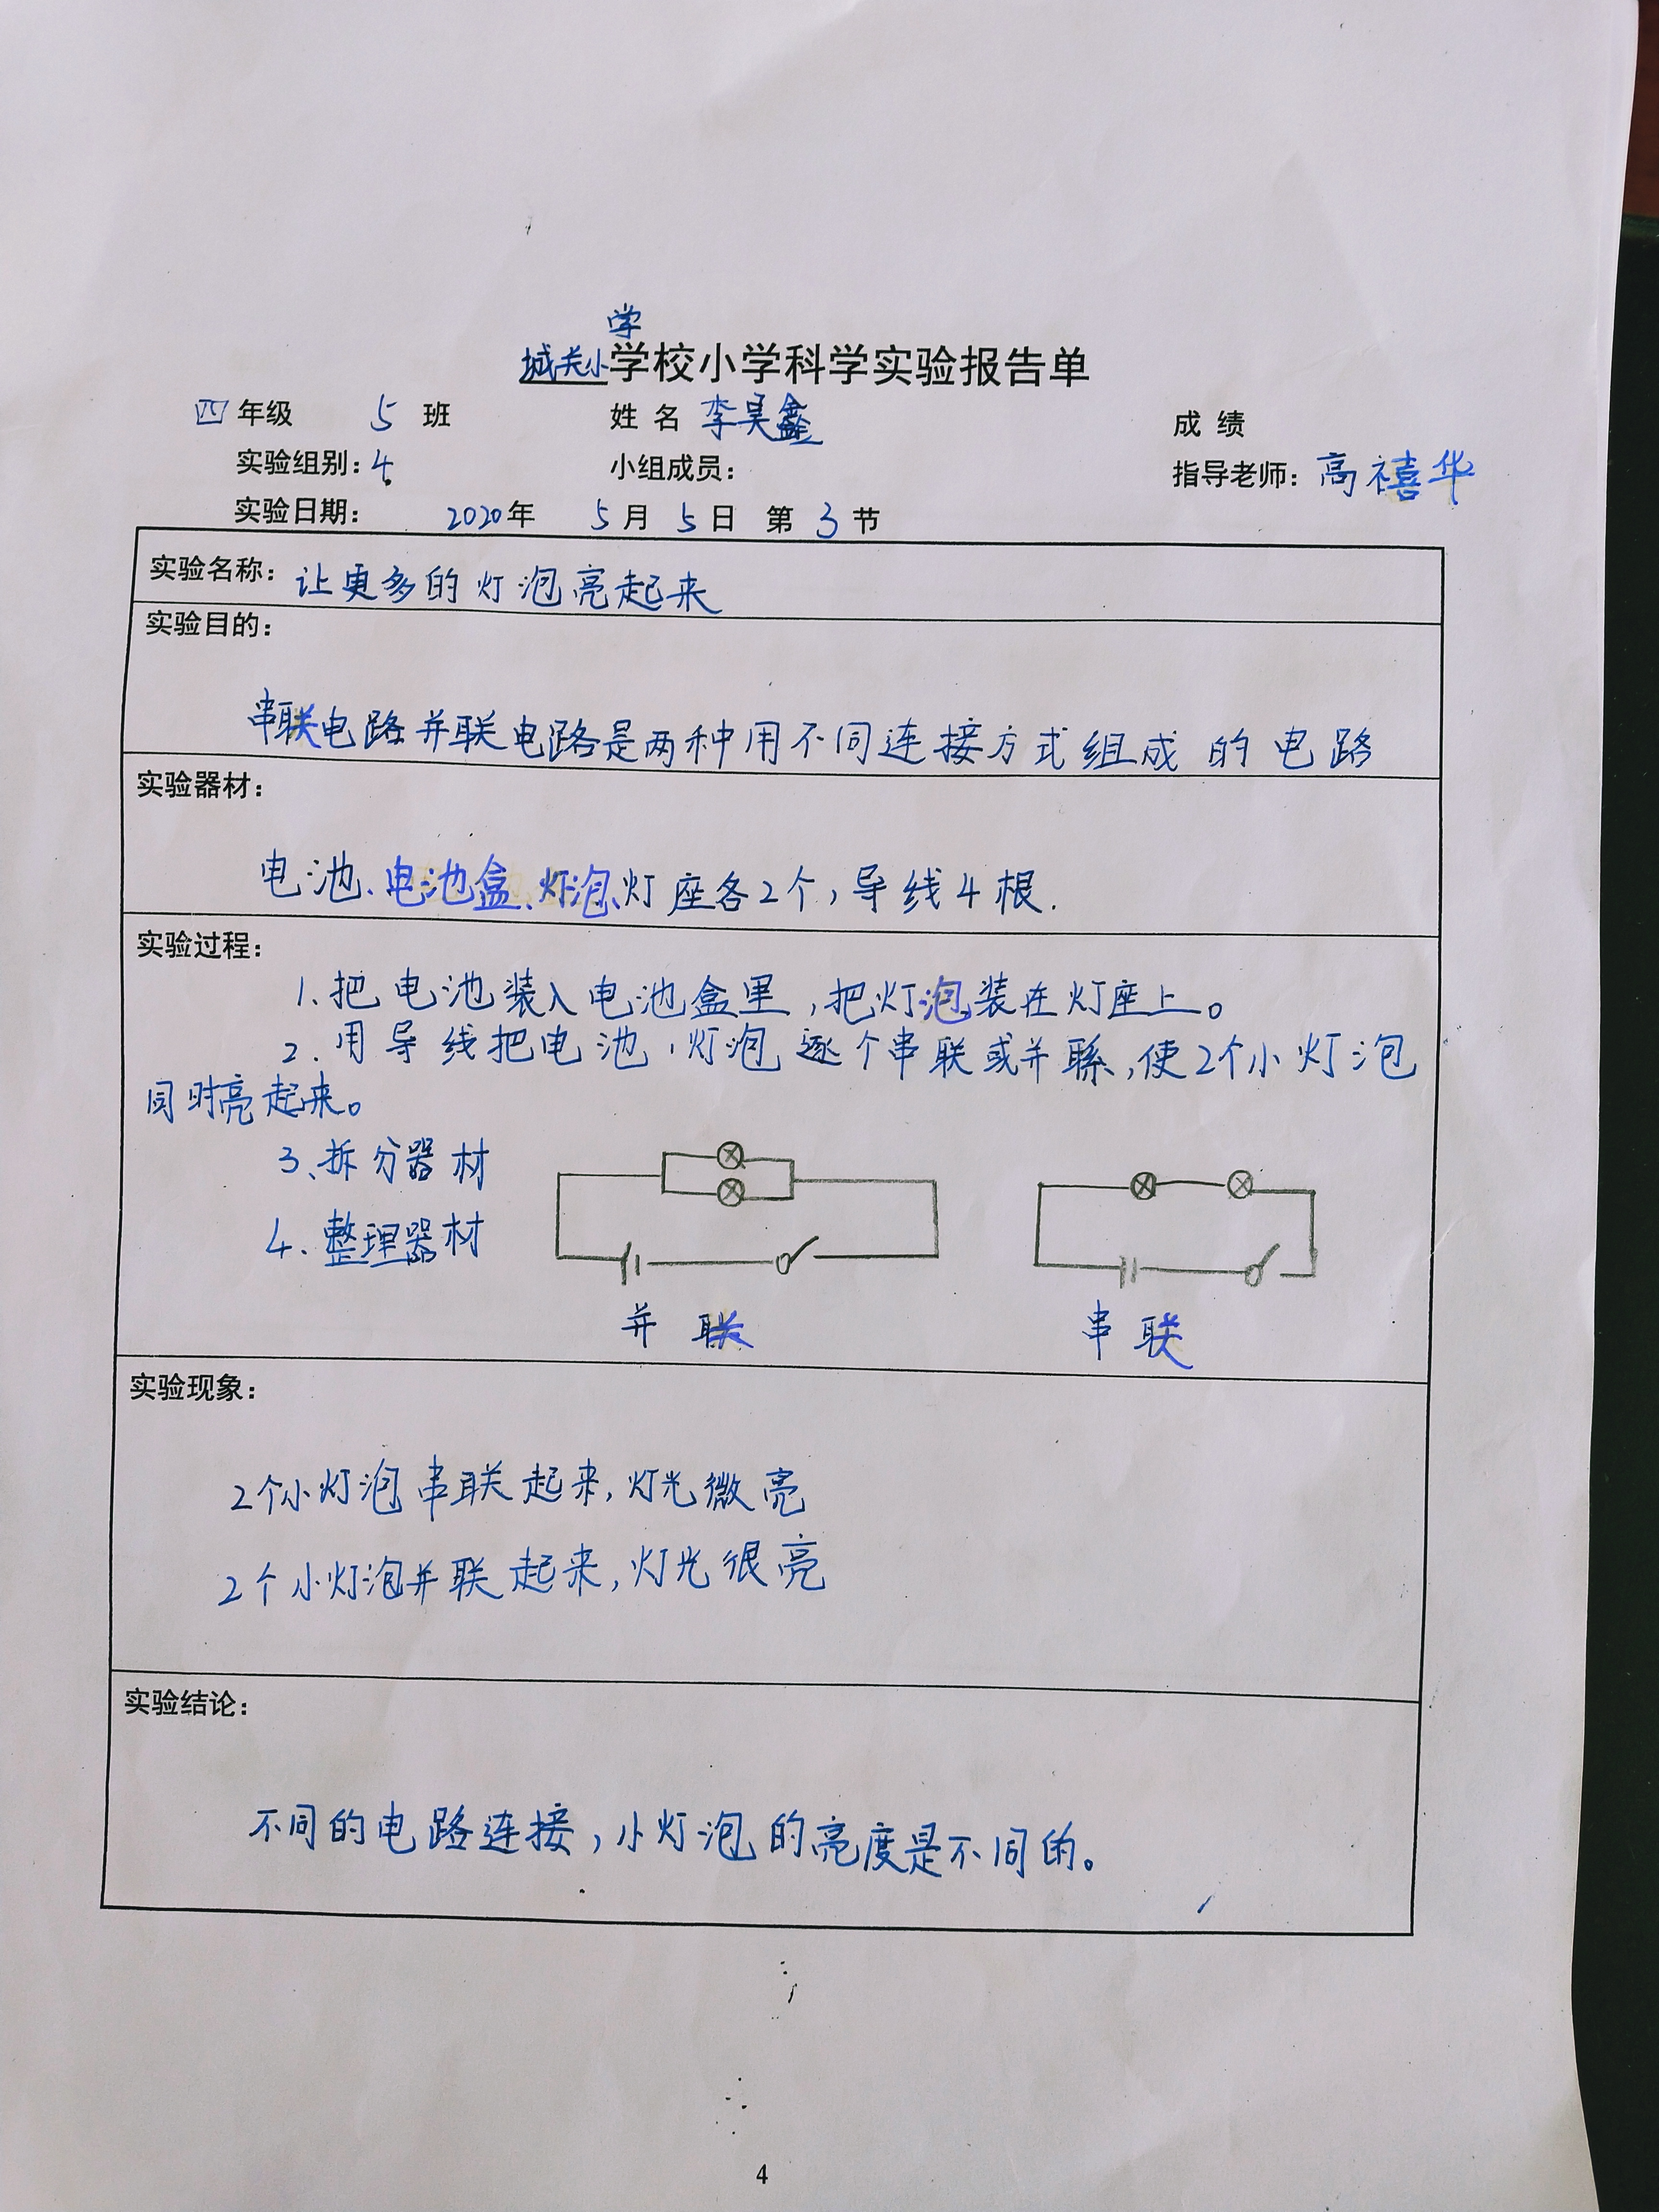 学
城关小学校小学科学实验报告单
四年级 5 班 姓名 李昊鑫 成绩
实验组别：4 小组成员： 指导老师：高禧华
实验日期： 2020年 5月 5日 第 3 节
实验名称：让更多的灯泡亮起来
实验目的：
串联电路并联电路是两种用不同连接方式组成的电路
实验器材：
电池、电池盒、灯泡、灯座各2个，导线4根.
实验过程：
1、把电池装入电池盒里，把灯泡装在灯座上。
2.用导线把电池、灯泡逐个串联或并聯，使2个小灯泡
同时亮起来。
3、拆分器材
4、整理器材
并联 串联
实验现象：
2个小灯泡串联起来，灯光微亮
2个小灯泡并联起来，灯光很亮
实验结论：
不同的电路连接，小灯泡的亮度是不同的。
4